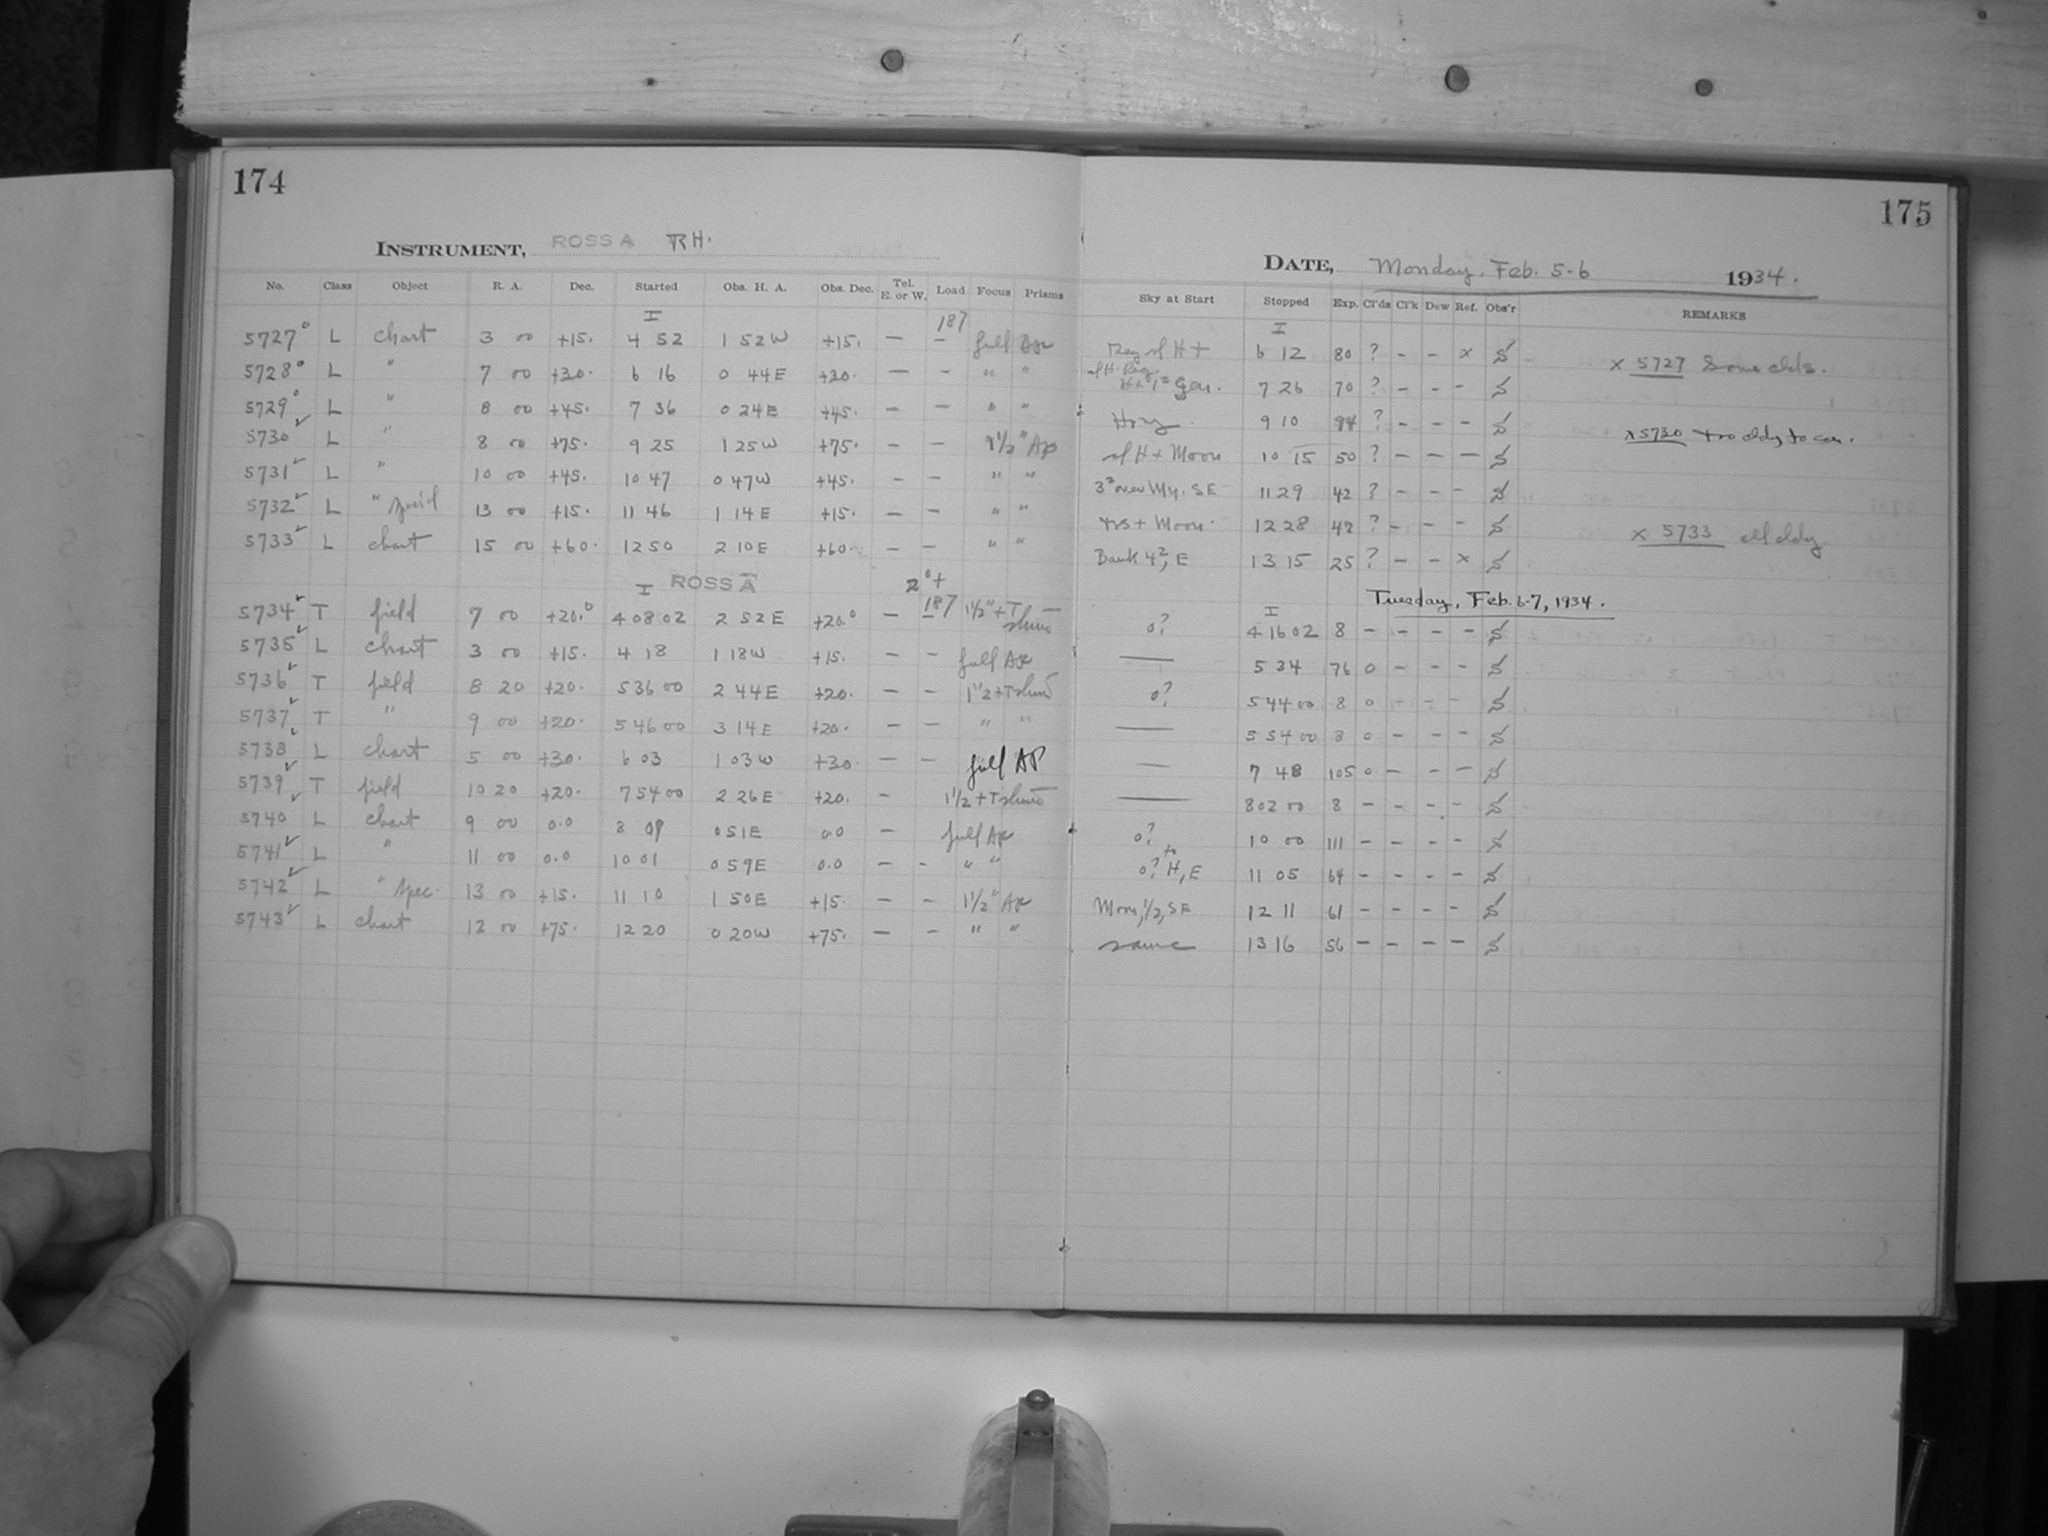 174
175
INSTRUMENT, ROSS A RH.
DATE, Monday, Feb. 5-6 1934.
No. Class Object R. A. Dec. Started Obs. H. A. Obs. Dec. Tel. E. or W. Load Focus Prisms Sky at Start Stopped Exp. Cl'ds Cl'k Dew Ref. Obs'r REMARKS
I 187 I
5727 L chart 3 00 +15. 4 52 1 52 W +15. — – full Ap 6 12 80 ? – – x S x 5727 Some clds.
5728 L " 7 00 +30. 6 16 0 44 E +30. — – " " 7 26 70 ? – – – S
5729 L " 8 00 +45. 7 36 0 24 E +45. — – " " Hzy. 9 10 94 ? – – – S
5730 L " 8 00 +75. 9 25 1 25 W +75. – – 1 1/2" Ap H + Moon 10 15 50 ? – – – S x 5730 too cldy to con.
5731 L " 10 00 +45. 10 47 0 47 W +45. – – " " SE 11 29 42 ? – – – S
5732 L " Spec'l 13 00 +15. 11 46 1 14 E +15. – – " " + Moon. 12 28 42 ? – – – S
5733 L chart 15 00 +60. 12 50 2 10 E +60. – – " " Bank 42, E 13 15 25 ? – – x S x 5733 all cldy
I ROSS A 2°+ Tuesday, Feb. 6-7, 1934.
5734 T field 7 00 +20.° 4 08 02 2 52 E +20.° – 187 1 1/2" + T o? I 4 16 02 8 – – – – S
5735 L chart 3 00 +15. 4 18 1 18 W +15. – – full Ap — 5 34 76 0 – – – S
5736 T field 8 20 +20. 5 36 00 2 44 E +20. – – 1 1/2 + T o? 5 44 00 8 0 – – – S
5737 T " 9 00 +20. 5 46 00 3 14 E +20. – – " " — 5 54 00 8 0 – – – S
5738 L chart 5 00 +30. 6 03 1 03 W +30 – – full AP — 7 48 105 0 – – – S
5739 T field 10 20 +20. 7 54 00 2 26 E +20. – 1 1/2 + T — 8 02 00 8 – – – – S
5740 L chart 9 00 0.0 8 09 0 51 E 0.0 – full Ap o? 10 00 111 – – – – S
5741 L " 11 00 0.0 10 01 0 59 E 0.0 – – " " o? to H, E 11 05 64 – – – – S
5742 L " Spec. 13 00 +15. 11 10 1 50 E +15. – – 1 1/2" Ap Moon, 1/2, SE 12 11 61 – – – – S
5743 L chart 12 00 +75. 12 20 0 20 W +75. – – " " same 13 16 56 – – – – S